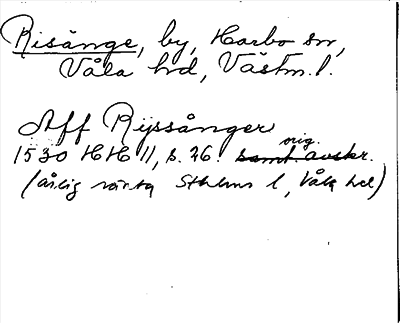 Risänge, by, Harbo sn,
Våla hd, Västm. l.
Aff Rijssånger
orig.
1530 HH 11, s. 26. samt avskr.
(årlig ränta Sthlms l, Våla hd)